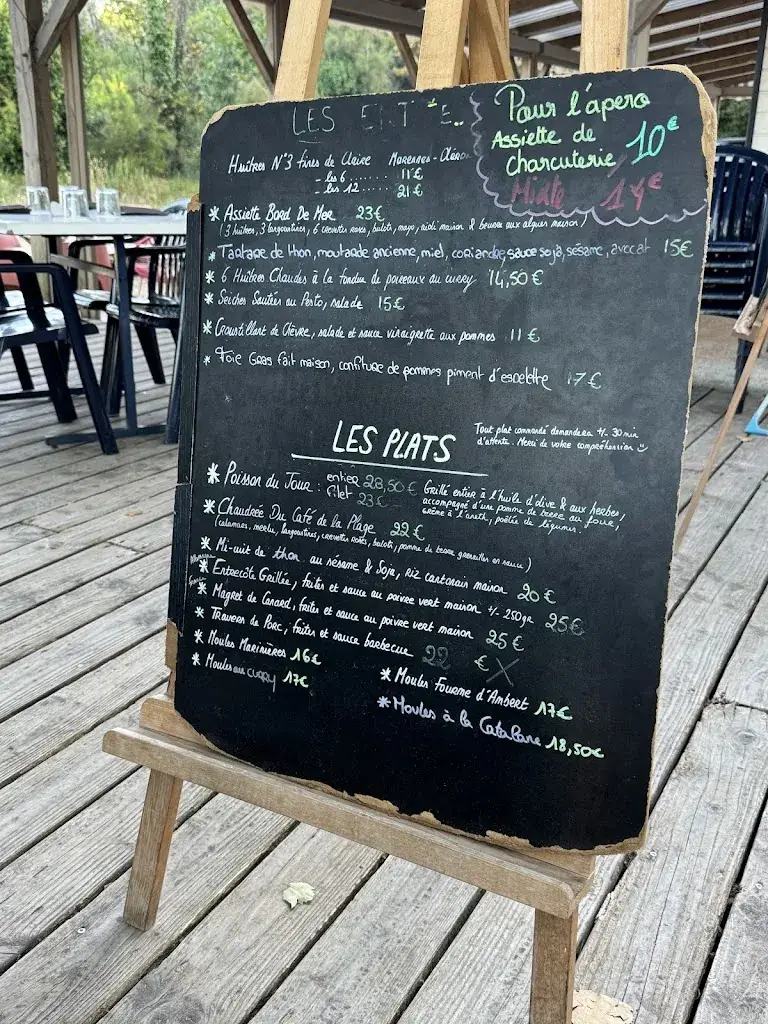 LES
Pour l'apero
Assiette de
charcuterie 10€
Mixte 14€
Huîtres N°3 fines de Claire Marennes-Oléron
- les 6 ...... 11€
- les 12 ..... 21€
* Assiette Bord De Mer 23€
(3 huîtres, 3 langoustines, 6 crevettes roses, bulots, mayo, aïoli maison & beurre aux algues maison)
* Tartare de thon, moutarde ancienne, miel, coriandre, sauce soja, sésame, avocat 15€
* 6 Huîtres Chaudes à la fondue de poireaux au curry 14,50€
* Seiches Sautées au Pesto, salade 15€
* Croustillant de Chèvre, salade et sauce vinaigrette aux pommes 11€
* Foie Gras fait maison, confiture de pommes piment d'espelette 17€
LES PLATS
Tout plat commandé demandera +/- 30 min
d'attente. Merci de votre compréhension
* Poisson du Jour : entier 28,50€
filet 23€
Grillé entier à l'huile d'olive & aux herbes,
accompagné d'une pomme de terre au four,
crème à l'aneth, poêlée de légumes.
* Chaudrée Du Café de la Plage 22€
(calamars, merlu, langoustines, crevettes roses, bulots, pomme de terre grenailles en sauce)
* Mi-cuit de thon au sésame & Soja, riz cantonais maison 20€
* Entrecôte Grillée, frites et sauce au poivre vert maison +/- 250gr 25€
* Magret de Canard, frites et sauce au poivre vert maison 25€
* Travers de Porc, frites et sauce barbecue 22 €
* Moules Marinières 16€
* Moules au curry 17€
* Moules Fourme d'Ambert 17€
* Moules à la Catalane 18,50€